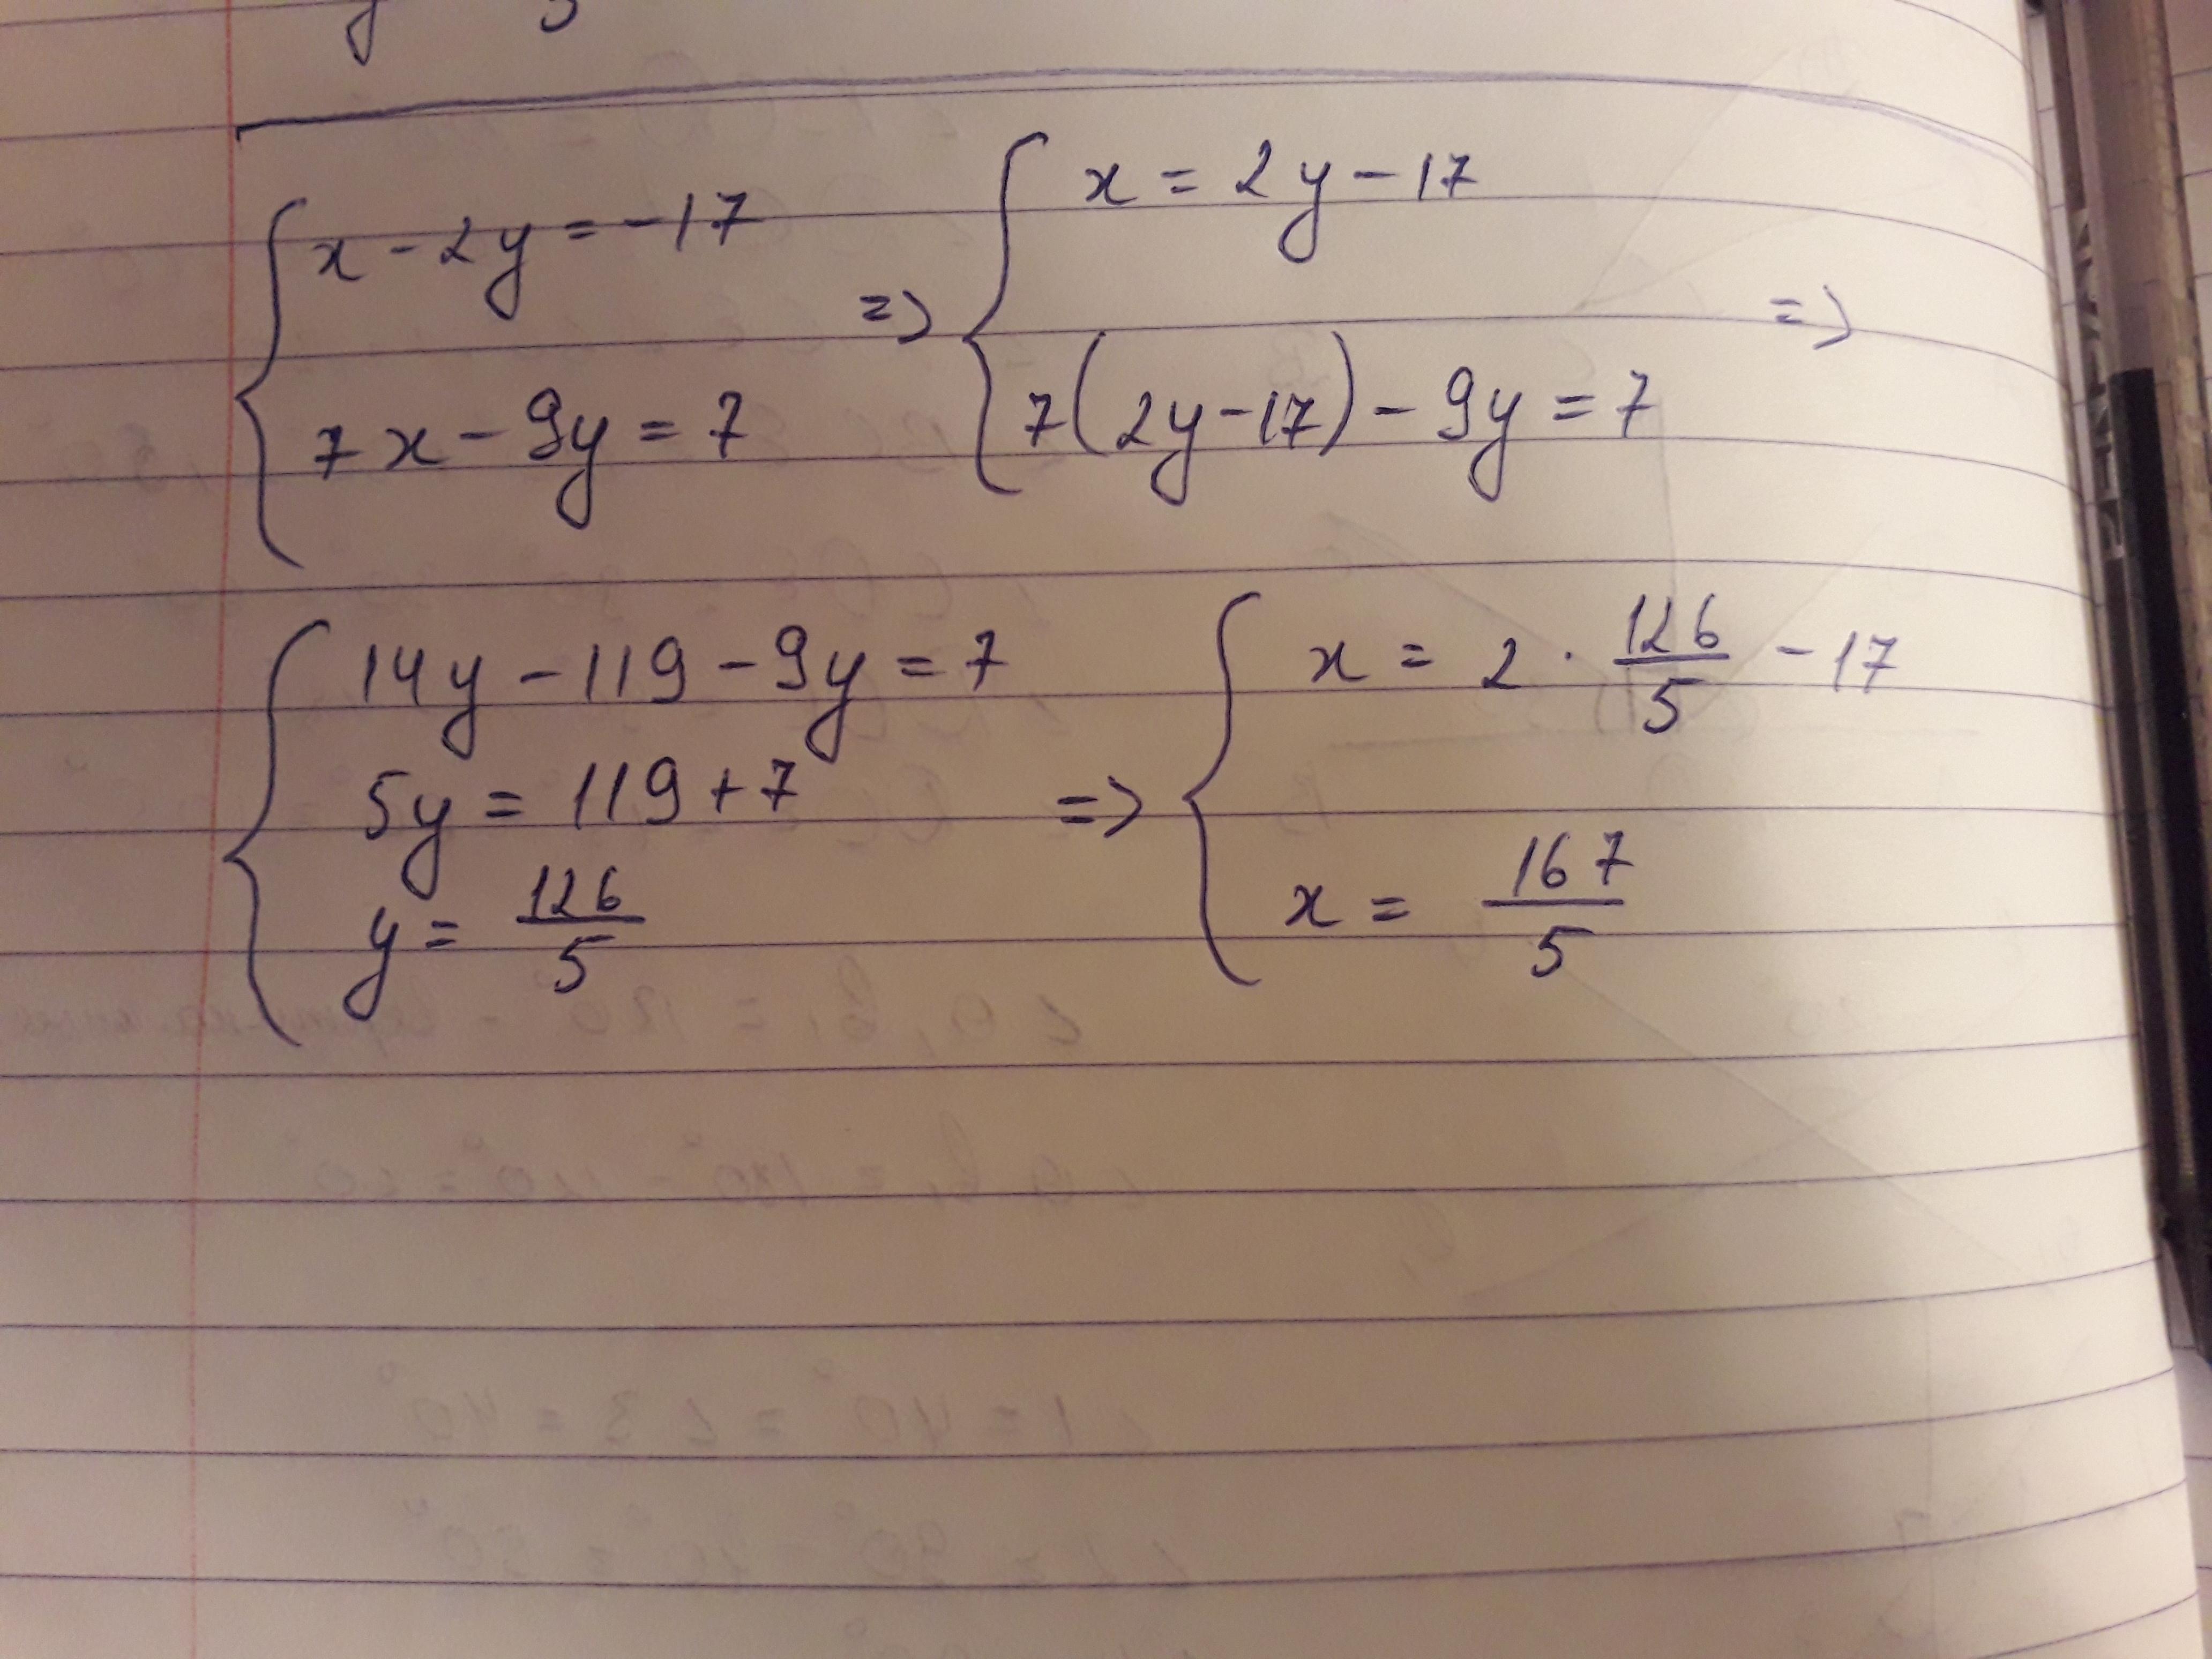 x - 2y = -17
7x - 9y = 7
=>
x = 2y - 17
7(2y-17) - 9y = 7
=>
14y - 119 - 9y = 7
5y = 119 + 7
y = 126/5
=>
x = 2 · 126/5 - 17
x = 167/5